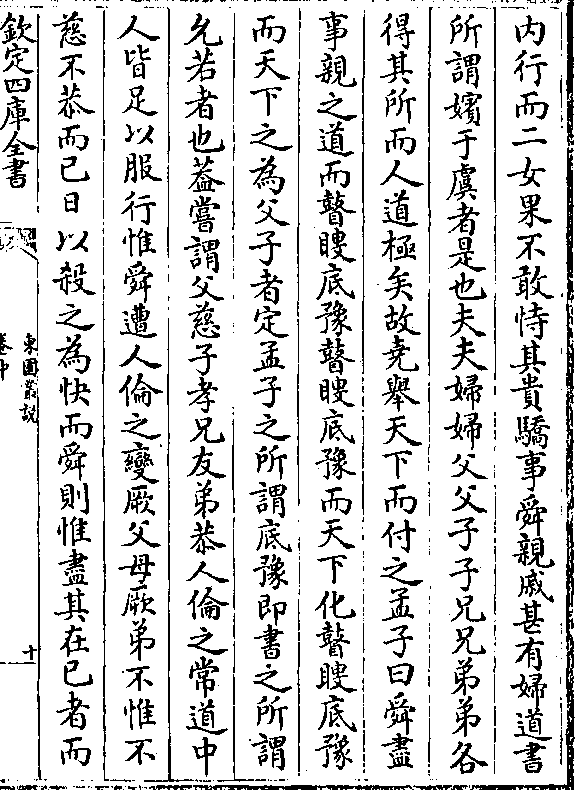 内行而二女果不敢恃其貴驕事舜親戚甚有婦道書
所謂嬪于虞者是也夫夫婦婦父父子子兄兄弟弟各
得其所而人道極矣故堯舉天下而付之孟子曰舜盡
事親之道而瞽瞍底豫瞽瞍底豫而天下化瞽瞍底豫
而天下之為父子者定孟子之所謂底豫即書之所謂
允若者也葢嘗謂父慈子孝兄友弟恭人倫之常道中
人皆足以服行惟舜遭人倫之變厥父母厥弟不惟不
慈不恭而已日以殺之為快而舜則惟盡其在已者而
欽定四庫全書
東園叢説
卷中
十